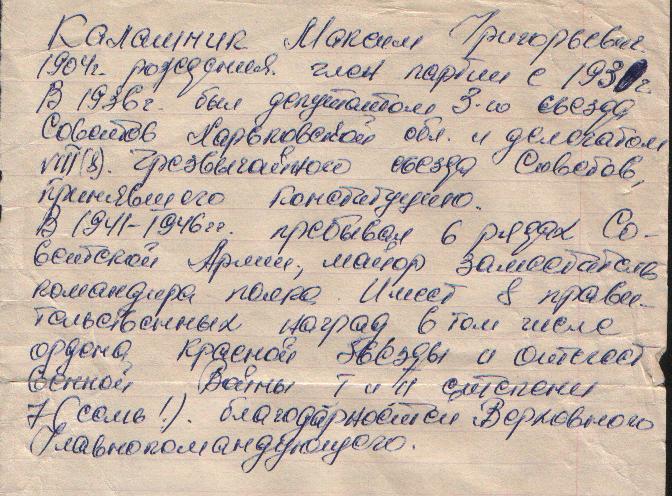 Калашник Максим Григорьевич
1904г. рождения. член партии с 1930г
В 1936г. был депутатом 3-го съезда
Советов Харьковской обл. и делегатом
VIII(8). Чрезвычайного съезда Советов,
принявшего Конституцию.
В 1941-1946гг. пребывал в рядах Со-
ветской Армии, майор заместитель
командира полка. Имеет 8 прави-
тельственных наград в том числе
ордена Красной Звезды и отечест
венной Войны I и II степени
7 (семь!). благодарностей Верховного
Главнокомандующего.